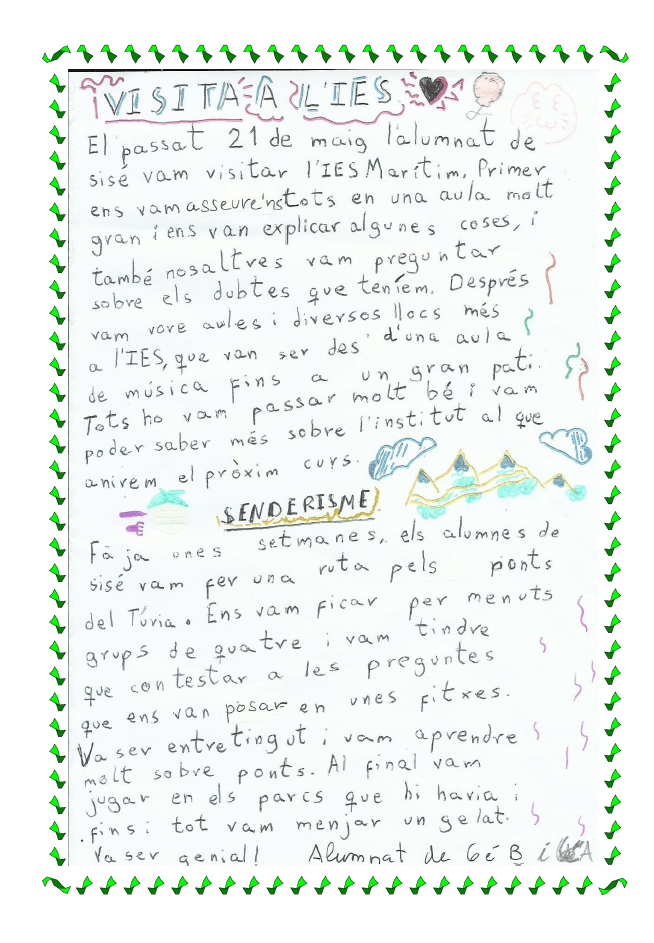 VISITA A L'IES
El passat 21 de maig l'alumnat de
sisé vam visitar l'IES Marítim. Primer
ens vam asseure'ns tots en una aula molt
gran i ens van explicar algunes coses, i
també nosaltres vam preguntar
sobre els dubtes que teníem. Després
vam vore aules i diversos llocs més
a l'IES, que van ser des d'una aula
de música fins a un gran pati.
Tots ho vam passar molt bé i vam
poder saber més sobre l'institut al que
anirem el pròxim curs.
SENDERISME
Fa ja unes setmanes, els alumnes de
sisé vam fer una ruta pels ponts
del Túria. Ens vam ficar per menuts
grups de quatre i vam tindre
que contestar a les preguntes
que ens van posar en unes fitxes.
Va ser entretingut i vam aprendre
molt sobre ponts. Al final vam
jugar en els parcs que hi havia i
fins i tot vam menjar un gelat.
Va ser genial! Alumnat de 6é B i A